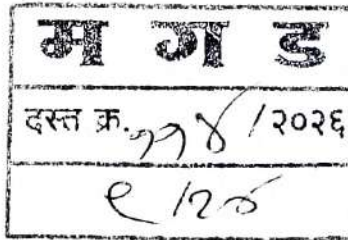 म ग ड
दस्त क्र. ११४ / २०२६